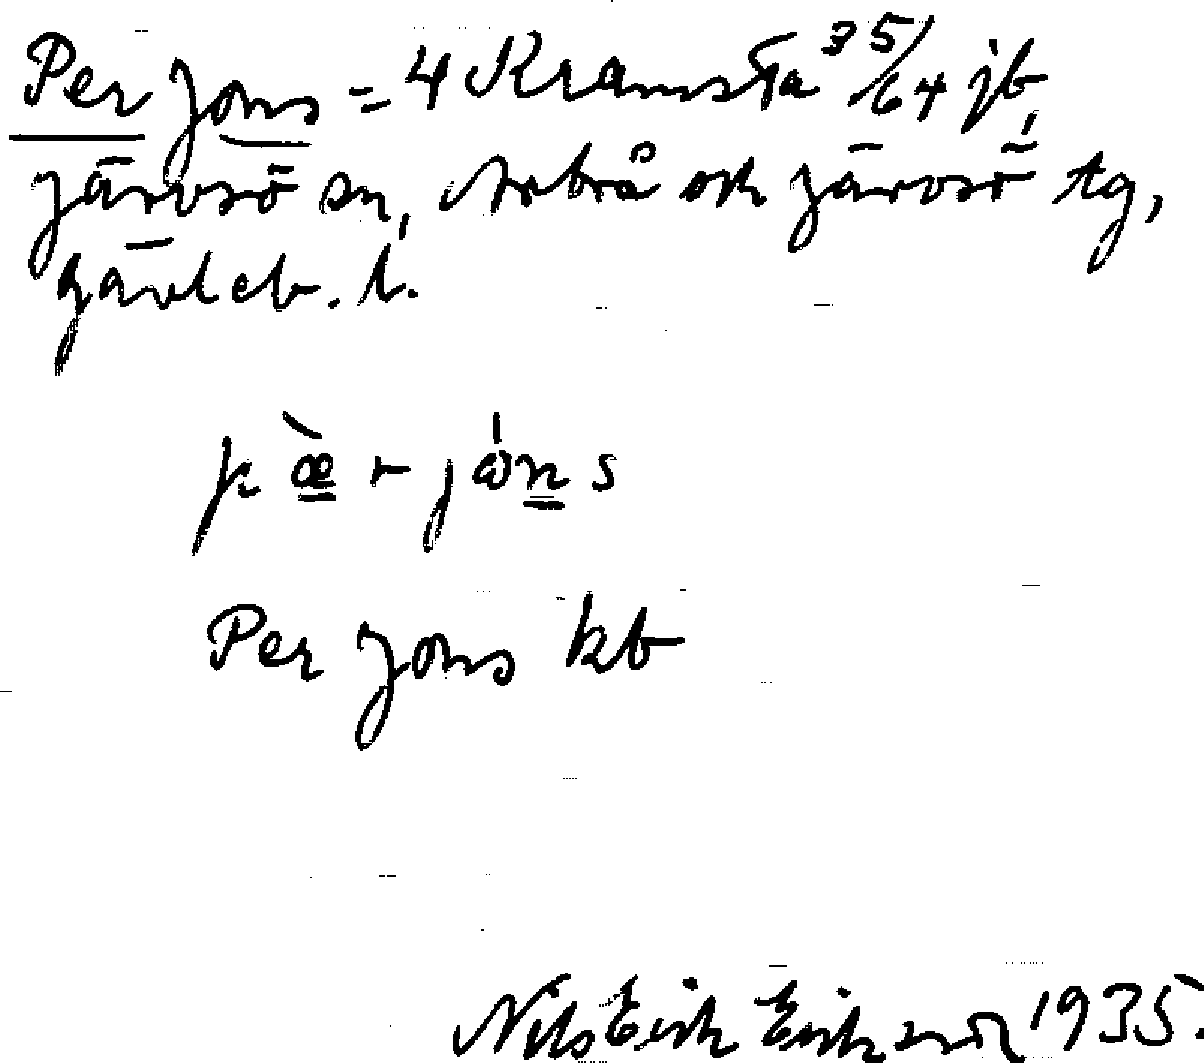 Per Jons = 4 Kramsta 35/64 jb,
Järvsö sn, Arbrå och Järvsö tg,
Gävleb. l.
pæ̀r jɷ́ns
Per Jons kb
Nils Erik Eriksson 1935.